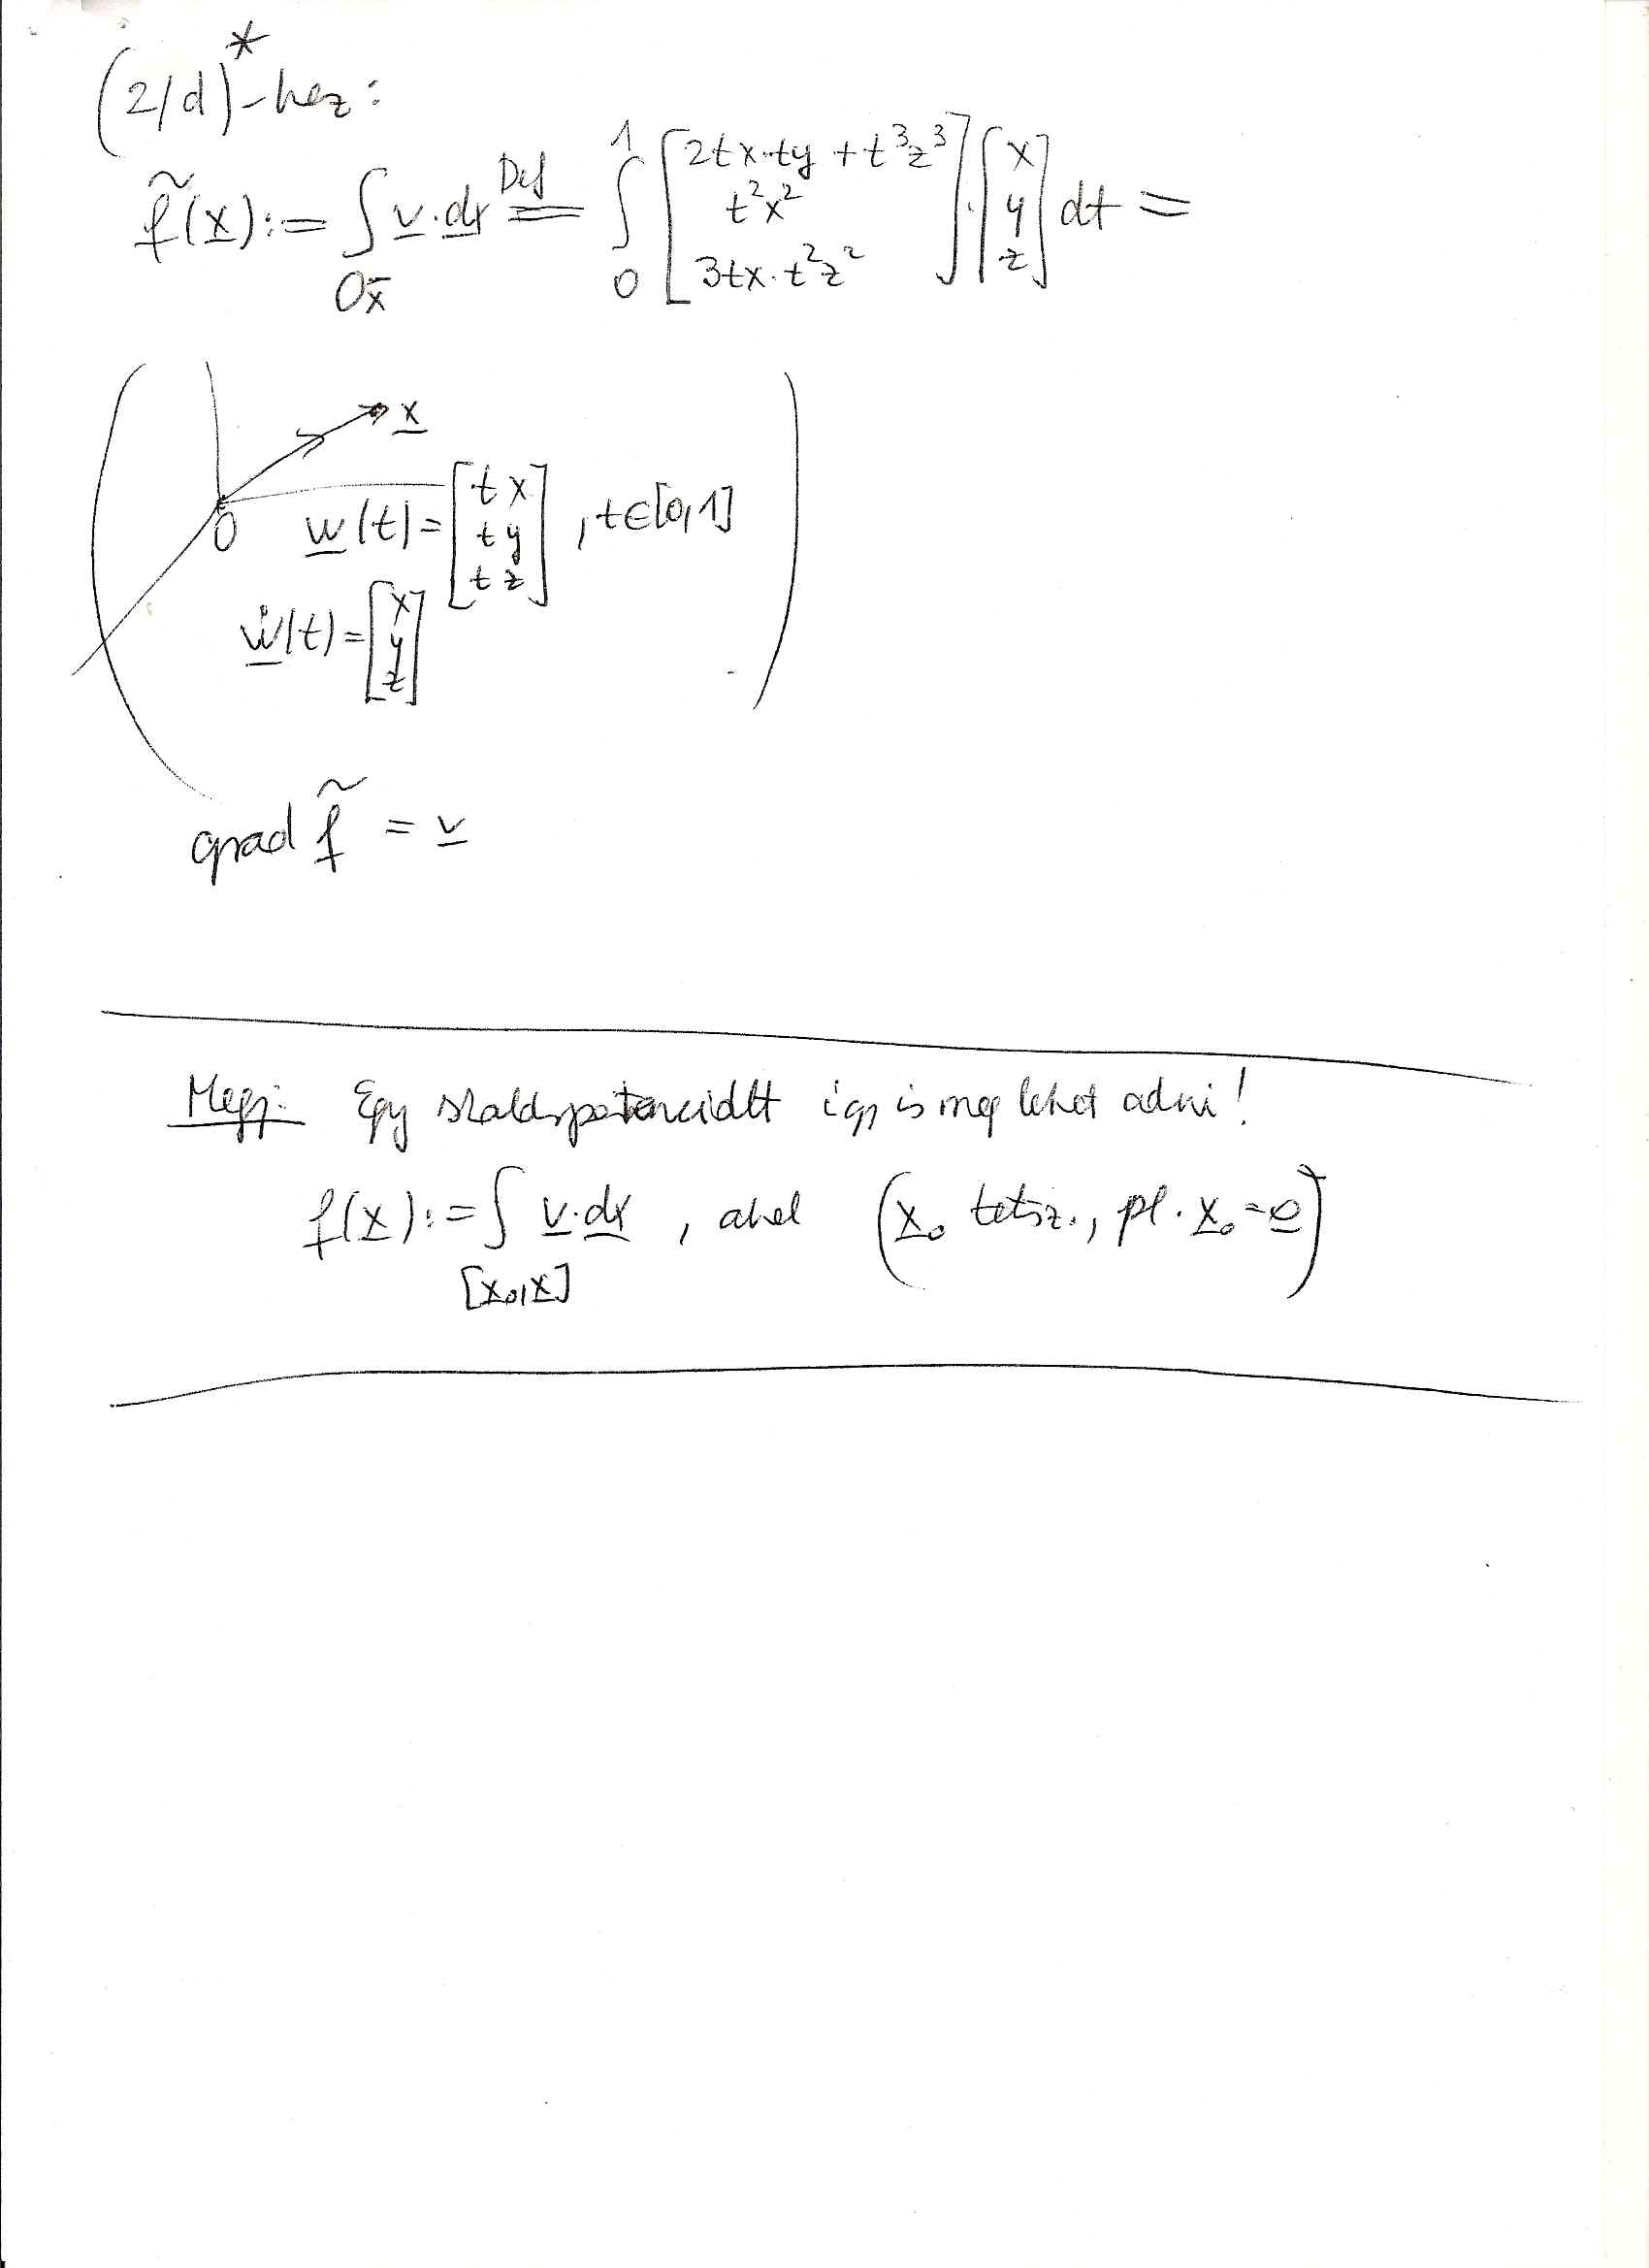 (2/d)*-hez:
f̃(x) := ∫_{0x̄} v·dr Def= ∫₀¹ [2tx·ty + t³z³; t²x²; 3tx·t²z²]·[x; y; z] dt =
x
0
w(t) = [tx; ty; tz], t∈[0,1]
ẇ(t) = [x; y; z]
grad f̃ = v
Megj: Egy skalárpotenciált így is meg lehet adni!
f(x) := ∫_{[x₀,x]} v·dr, ahol (x₀ tetsz., pl. x₀=0)